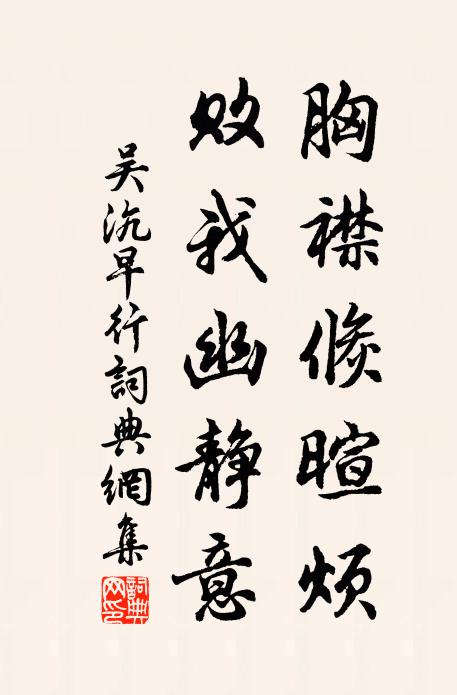 胸襟倏暄烦
败我幽静意
吴沆早行詞典網集
詞典网印